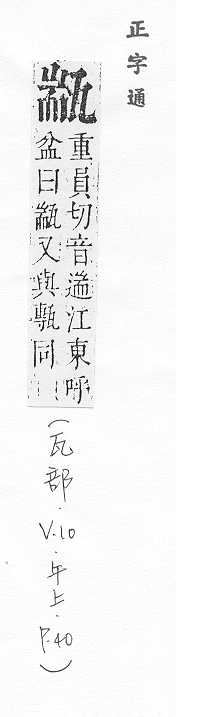 正字通
㼷
重員切音遄江東呼
盆曰㼷又與甎同
(瓦部·V.10·午上·P.40)